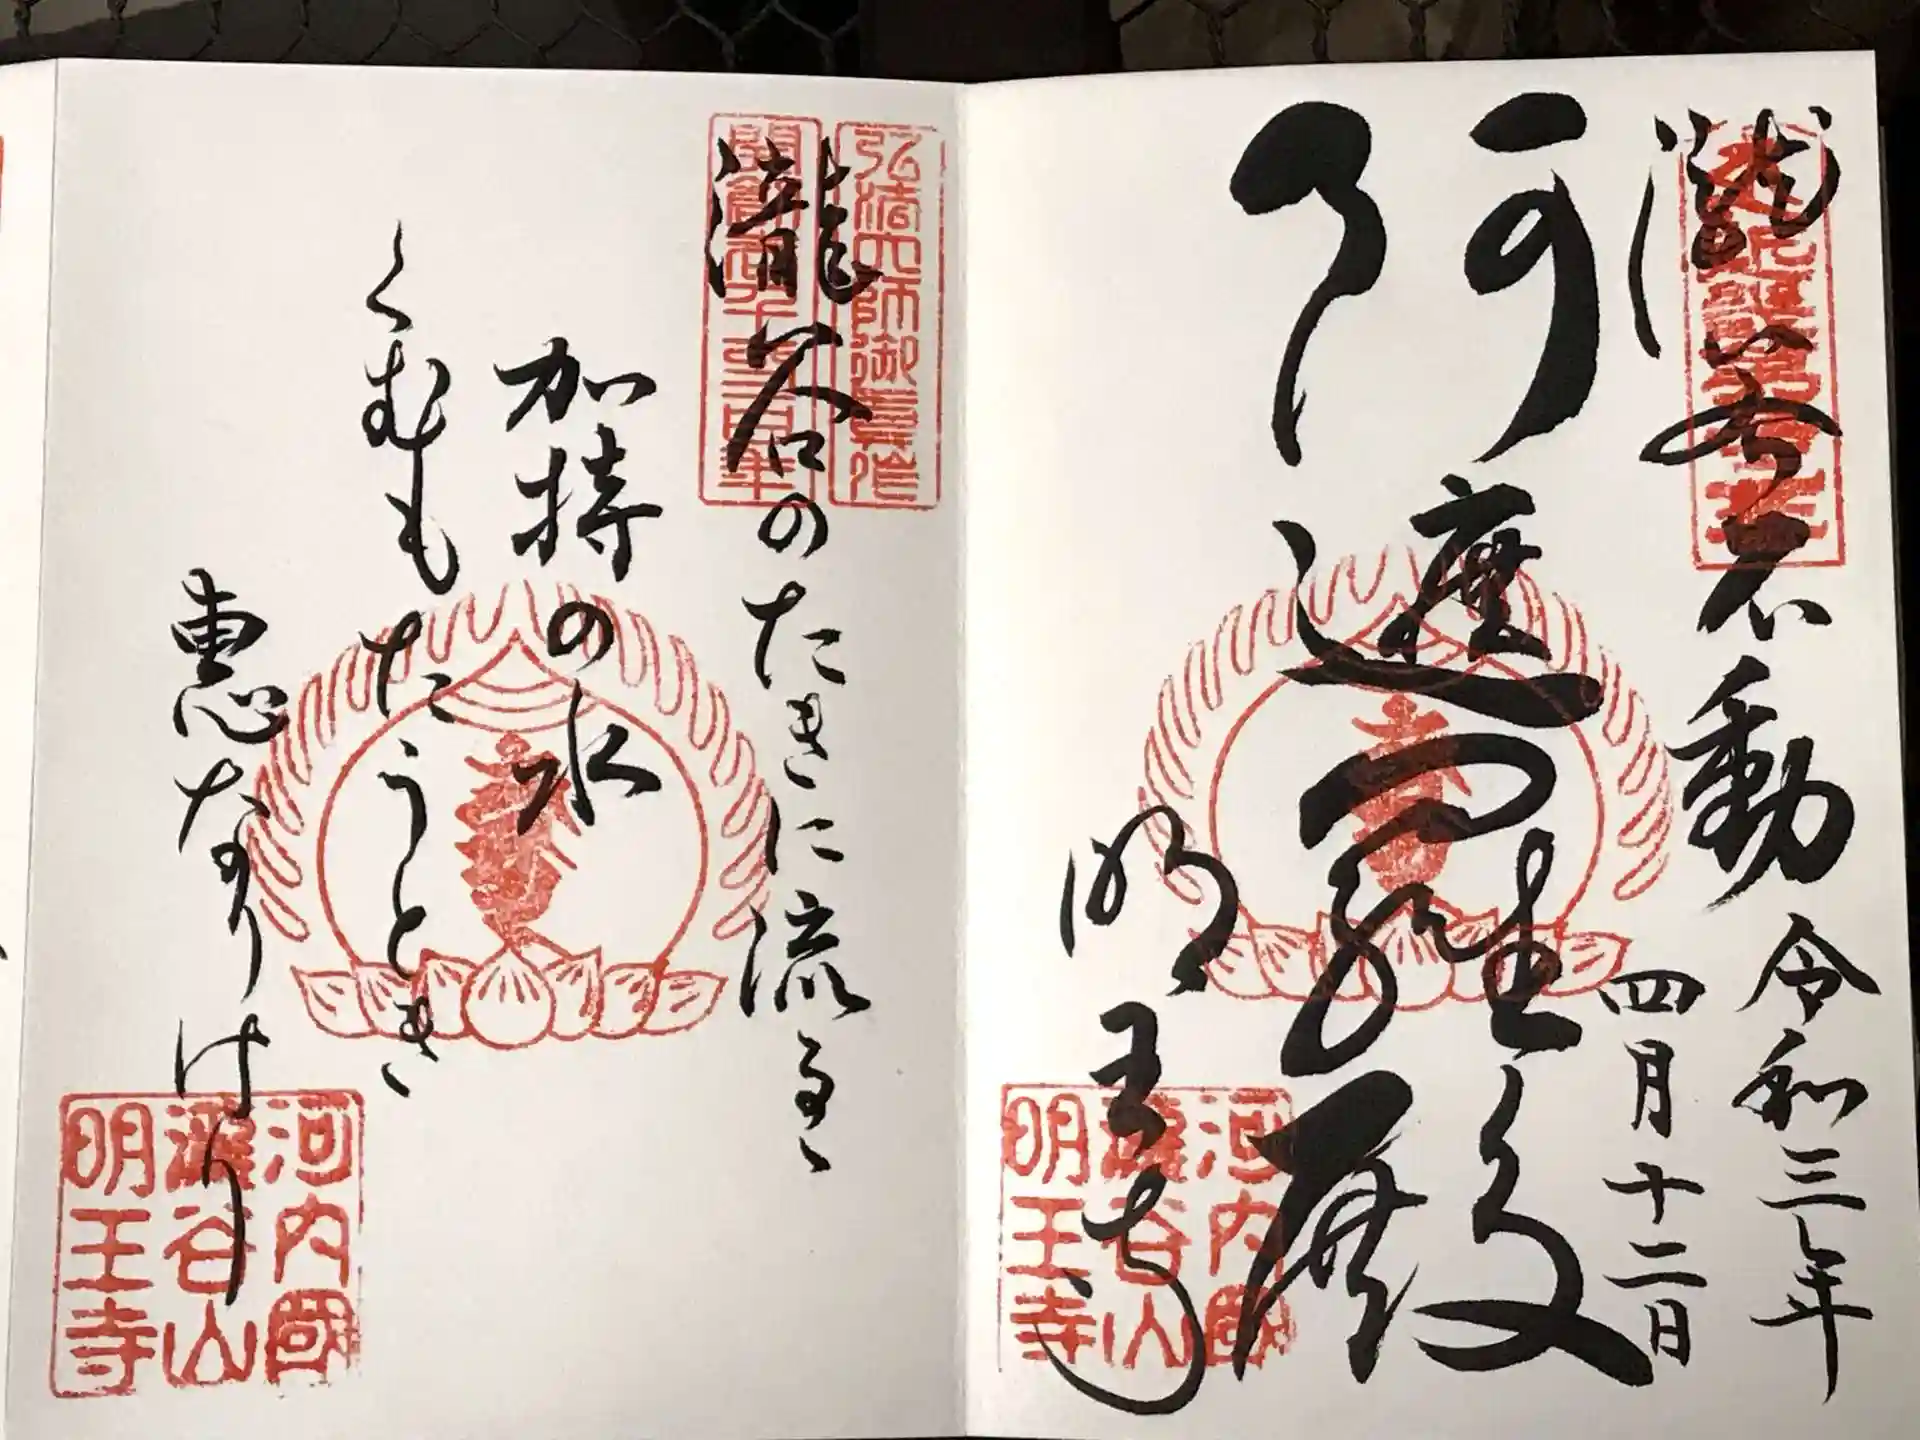 瀧谷不動
令和三年
四月十二日
阿遮羅殿
明王寺
河内國
瀧谷山
明王寺
弘法大師御真作
開創壱千二百年
瀧谷のたきに流るゝ
加持の水
くむもたうとき
恵なりけり
河内國
瀧谷山
明王寺